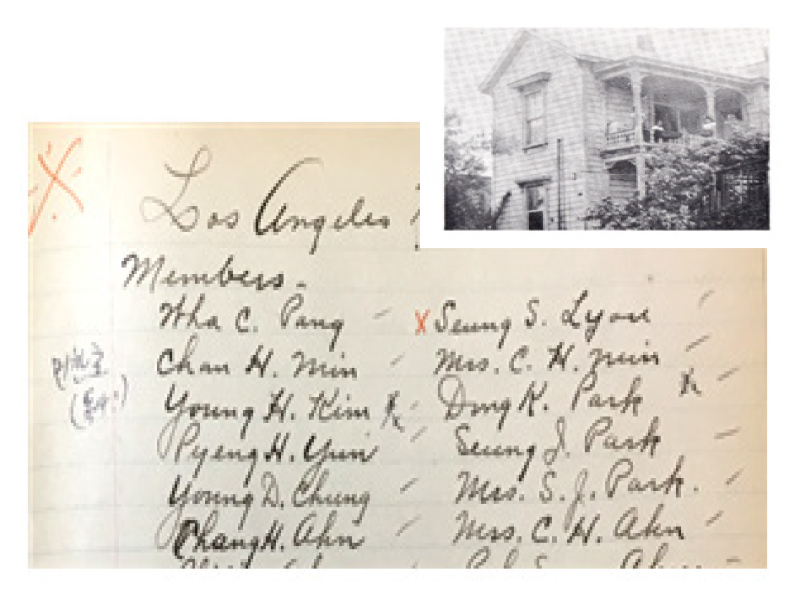 Los Angeles
Members.
Wha C. Pang
Chan H. Min
Young H. Kim
Pyeng H. Yun
Young D. Chung
Chang H. Ahn
X Seung S. Lyou
Mrs. C. H. Min
Dong K. Park
Seung J. Park
Mrs. S. J. Park.
Mrs. C. H. Ahn